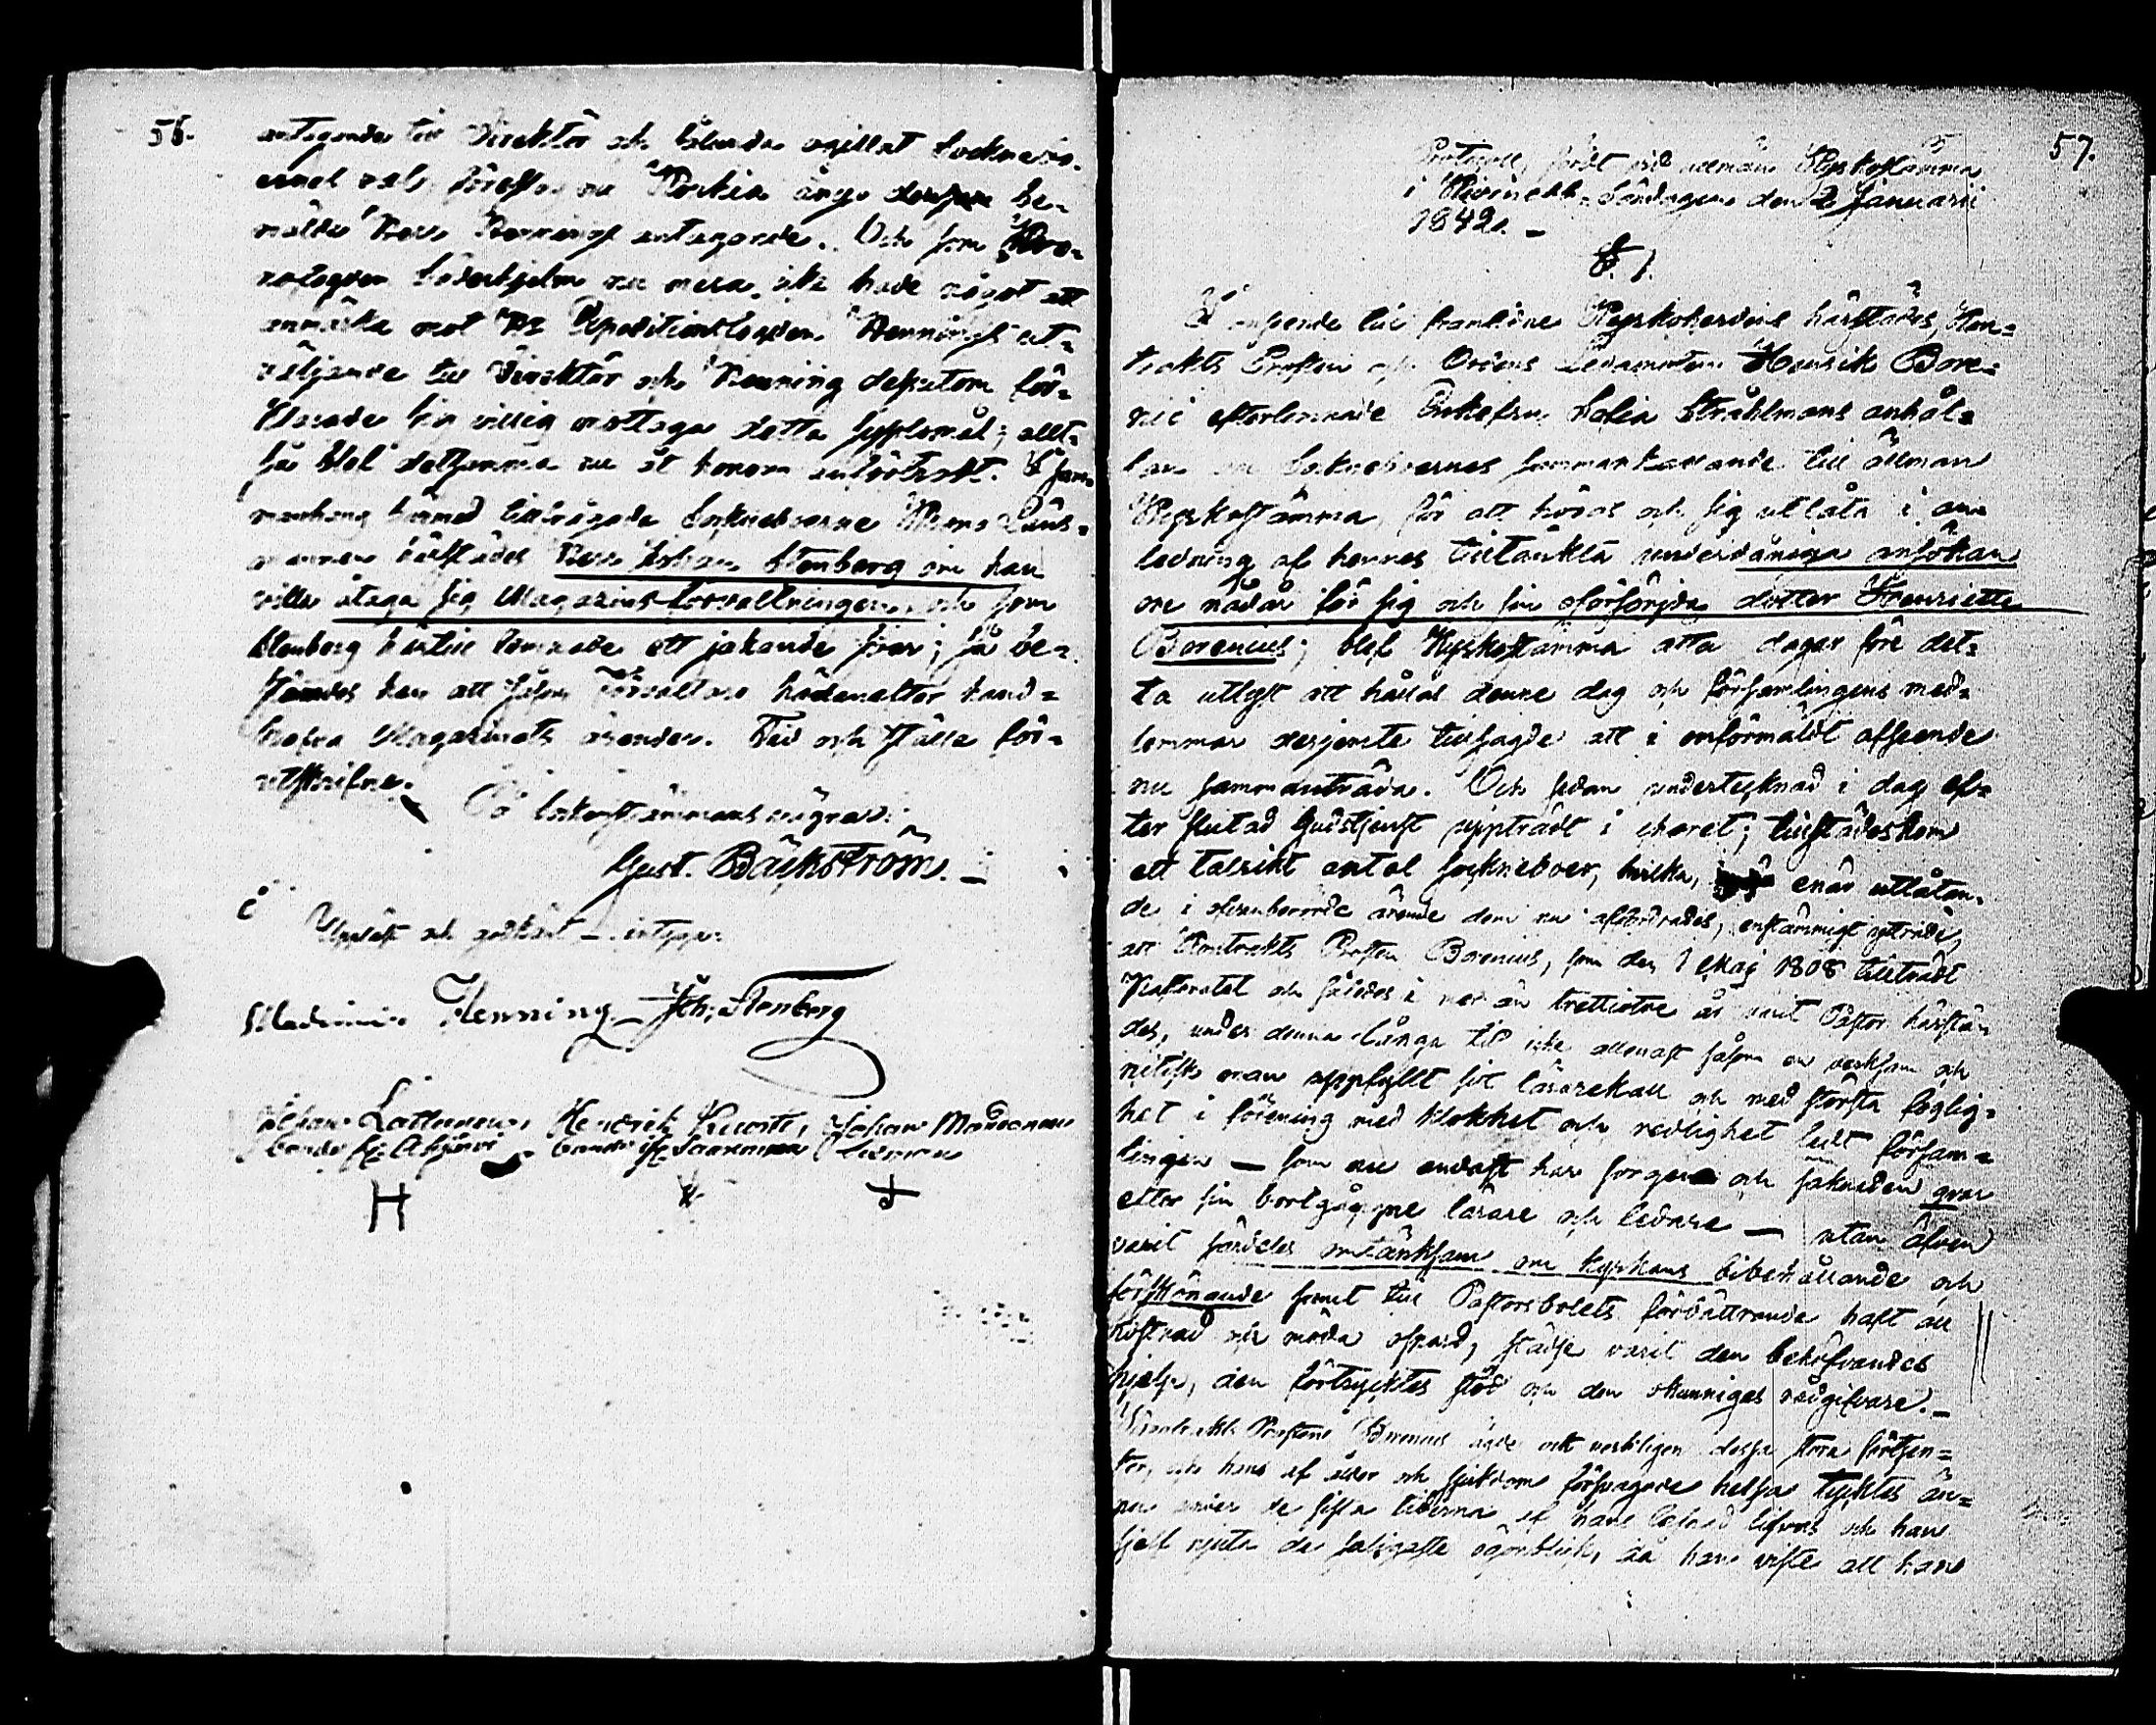 56.
antagande till Direktör och sålunda ogillat Sockneboernes
val, föreslog nu Kyrkio
mälde Herr Hennings antagande. Och som Kro-
nofogden Söderhjelm nu mera icke hade något att
anmärka mot Hr Expeditionsfogden Hennings ut-
väljande till Direktör och Henning dessutom för-
klarade sig villig mottaga detta sysslomål; allt-
så blef detsamma nu åt honom anförtrodt. I sam-
manhang härmed tillfrågade Sockneboerne Krono Läns-
mannen härstädes Herr Johan Stenberg om han
ville åtaga sig Magazins förvaltningen, och som
Stenberg härtill lemnade ett jakande svar; så be-
stämdes han att såsom Förvaltare hädanefter hand-
hafva Magazinets ärenden. Tid och ställe för-
utskrifne.
På Sockenstämmans vägnar:
Gust. Bäckström.
Uppläst och godkänt — intyga:
Wladimir Henning. Joh: Stenberg
Johan Lattunen, Hendrik Kuorti, Johan Manda
bonde fr: bonde ifr.
H + +
57.
Protocoll, fördt vid allmän Kyrkostämma
i Söndagen den 2 Januarii
1842. —
§. 1.
I anseende till framlidne Kyrkoherdens härstädes, Kon-
trakts Prosten och Ordens Ledamoten Henrik Bore-
nii efterlemnade Enkefru Sofia Stråhlmans anhål-
lan om Sockneboernes sammankallande till allmän
Kyrkostämma, för att höras och sig utlåta i an-
ledning af hennes tilltänkta underdåniga ansökan
om nådår för sig och sin oförsörjda dotter Henriette
Borenius; blef Kyrkostämma åtta dagar före det-
ta utlyst att hållas denne dag och församlingens med-
lemmar derjemte tillsagde att i omförmäldt afseende
nu sammanträda. Och sedan undertecknad i dag ef-
ter slutad Gudstjenst uppträdt i choret; tillstädeskom
ett talrikt antal sockneboer, hvilka, enär utlåtan-
de i ofvanberörde ärende dem nu affordrades, enstämmigt yttrade,
att Kontrakts Prosten Borenius, som den 1 Maj 1808 tillträdt
Pastoratet och således i mer än trettiotre år varit Pastor härstä-
des, under denna långa tid icke allenast såsom en verksam och
nitisk man uppfyllt sit lärarekall och med största foglig-
het i förening med klokhet och redlighet ledt församl-
lingen — som nu endast har sorgen och saknaden qvar
efter sin bortgångne lärare och ledare — utan äfven
varit särdeles omtänksam om kyrkans bibehållande och
förskönande samt till Pastorsbolets förbättrande haft all
kostnad och möda ospard, städse varit den behöfvandes
hjelp, den förtrycktes stöd och den okunniges rådgifvare. —
Kontrakts Prosten Borenius ägde ock verkligen dessa stora förtjen-
ster, och hans af ålder och sjukdom försvagade helsa tycktes än-
nu under de sista tiderna af hans lefnad lifvas och han
sjelf njuta de saligaste ögonblick, då han visste att hans